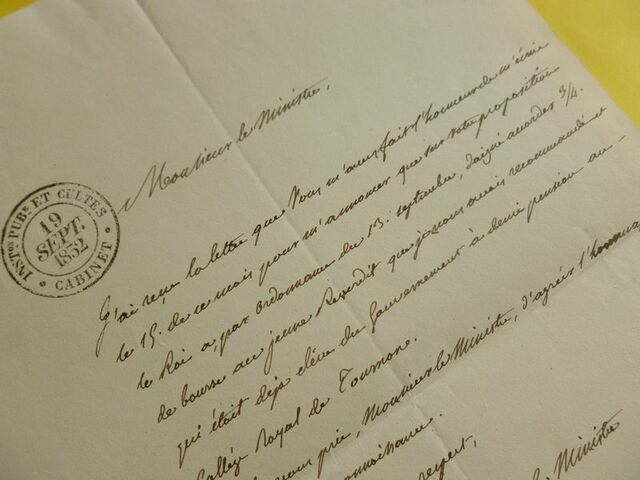 Monsieur le Ministre,
INST.ON PUB.E ET CULTES
19
SEPT.
1832
CABINET
J'ai reçu la lettre que Vous m'avez fait l'honneur de m'écrire
le 15. de ce mois pour m'annoncer que sur votre proposition
le Roi a par Ordonnance du 13. septembre, daigné accorder 3/4.
de bourse au jeune que je vous avais recommandé et
qui était déjà élève du Gouvernement à demi pension au
Collège Royal de Tournon.
vous prie, Monsieur le Ministre, d'agréer l'hommage
connaissance.
respect,
le Ministre